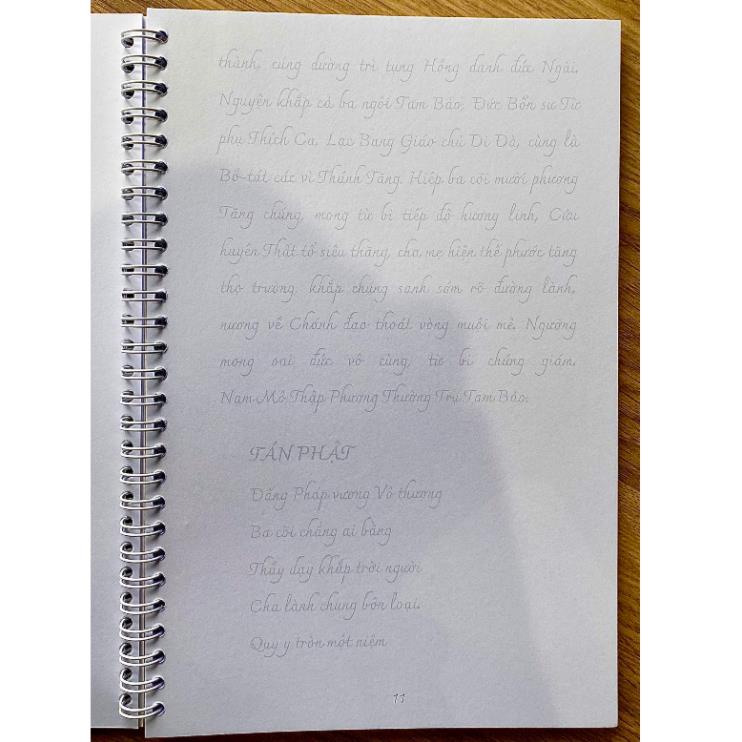 thành, cúng dường trì tụng Hồng danh đức Ngài.
Nguyện khắp cả ba ngôi Tam Bảo, Đức Bổn sư Từ
phụ Thích Ca, Lạc Bang Giáo chủ Di Đà, cùng là
Bồ-tát các vì Thánh Tăng. Hiệp ba cõi mười phương
Tăng chúng, mong từ bi tiếp độ hương linh, Cửu
huyền Thất tổ siêu thăng, cha mẹ hiện thế phước tăng
thọ trường, khắp chúng sanh sớm rõ đường lành,
nương về Chánh đạo thoát vòng muội mê. Ngưỡng
mong oai đức vô cùng, từ bi chứng giám.
Nam-Mô Thập Phương Thường Trụ Tam Bảo.
TÁN PHẬT
Đấng Pháp vương Vô thượng
Ba cõi chẳng ai bằng
Thầy dạy khắp trời người
Cha lành chung bốn loại.
Quy y tròn một niệm
11